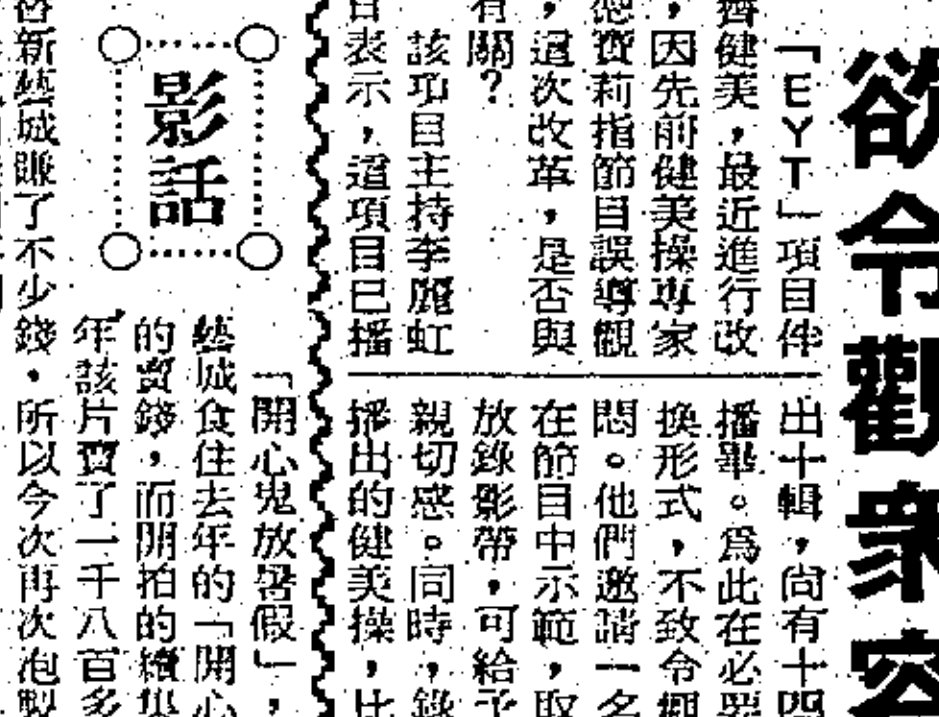 欲令觀眾容
「EYT」項目伴
齊健美，最近進行改
，因先前健美操專家
寶莉指節目誤導觀
，這次改革，是否與
有關？
該項目主持李麗虹
表示，這項目已播
出十輯，尚有十四
播畢。為此在必要
換形式，不致令觀
悶。他們邀請一名
在節目中示範，取
放錄影帶，可給予
親切感。同時，錄
播出的健美操，比
影話
「開心鬼放暑假」，
藝城食住去年的「開心
的賣錢，而開拍的續集
年該片賣了一千八百多
新藝城賺了不少錢。所以今次再次泡製